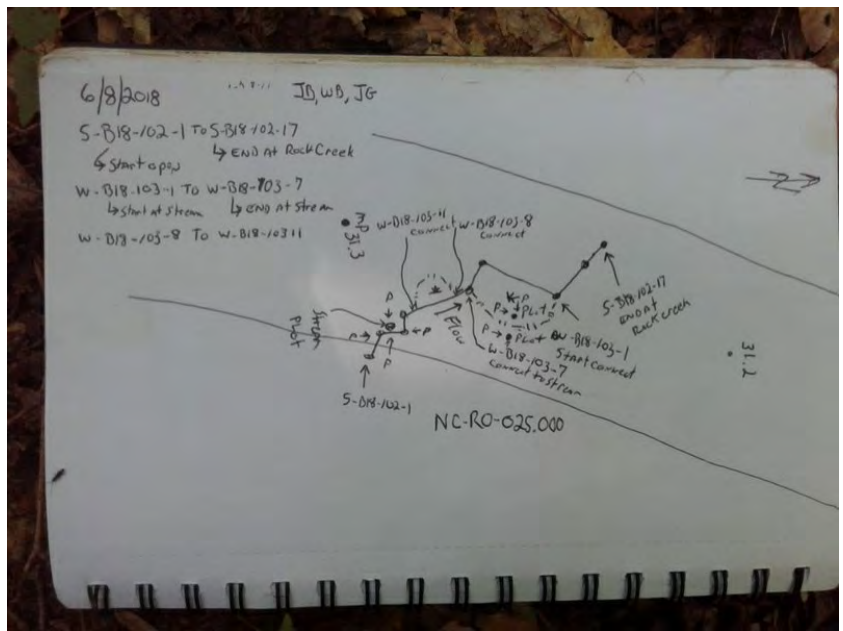 6/8/2018
JB, WB, JG
S-B18-102-1 To S-B18-102-17
↳ Start open
↳ END At Rock Creek
W-B18-103-1 To W-B18-103-7
↳ Start at stream
↳ END at stream
W-B18-103-8 To W-B18-10311
MP
31.3
W-B18-103-11
connect
W-B18-103-8
connect
S-B18-102-17
END At
Rock Creek
P
P
P Plot
P Plot
W-B18-103-1
Start connect
Flow
W-B18-103-7
connect to stream
Stream
Plot
P
P
P
P
S-B18-102-1
31.2
NC-RO-025.000